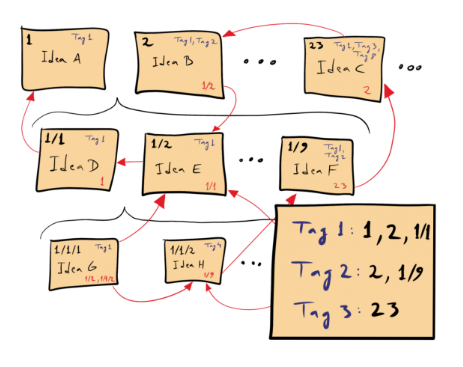 1 Tag 1
Idea A
2 Tag1, Tag2
Idea B
1/2
23 Tag1, Tag3,
Tag 8
Idea C
2
1/1 Tag 1
Idea D
1
1/2 Tag1
Idea E
1/1
1/9 Tag1,
Tag2
Idea F
23
1/1/1 Tag1
Idea G
1/2, 1/1/2
1/1/2 Tag4
Idea H
1/9
Tag 1: 1, 2, 1/1
Tag 2: 2, 1/9
Tag 3: 23